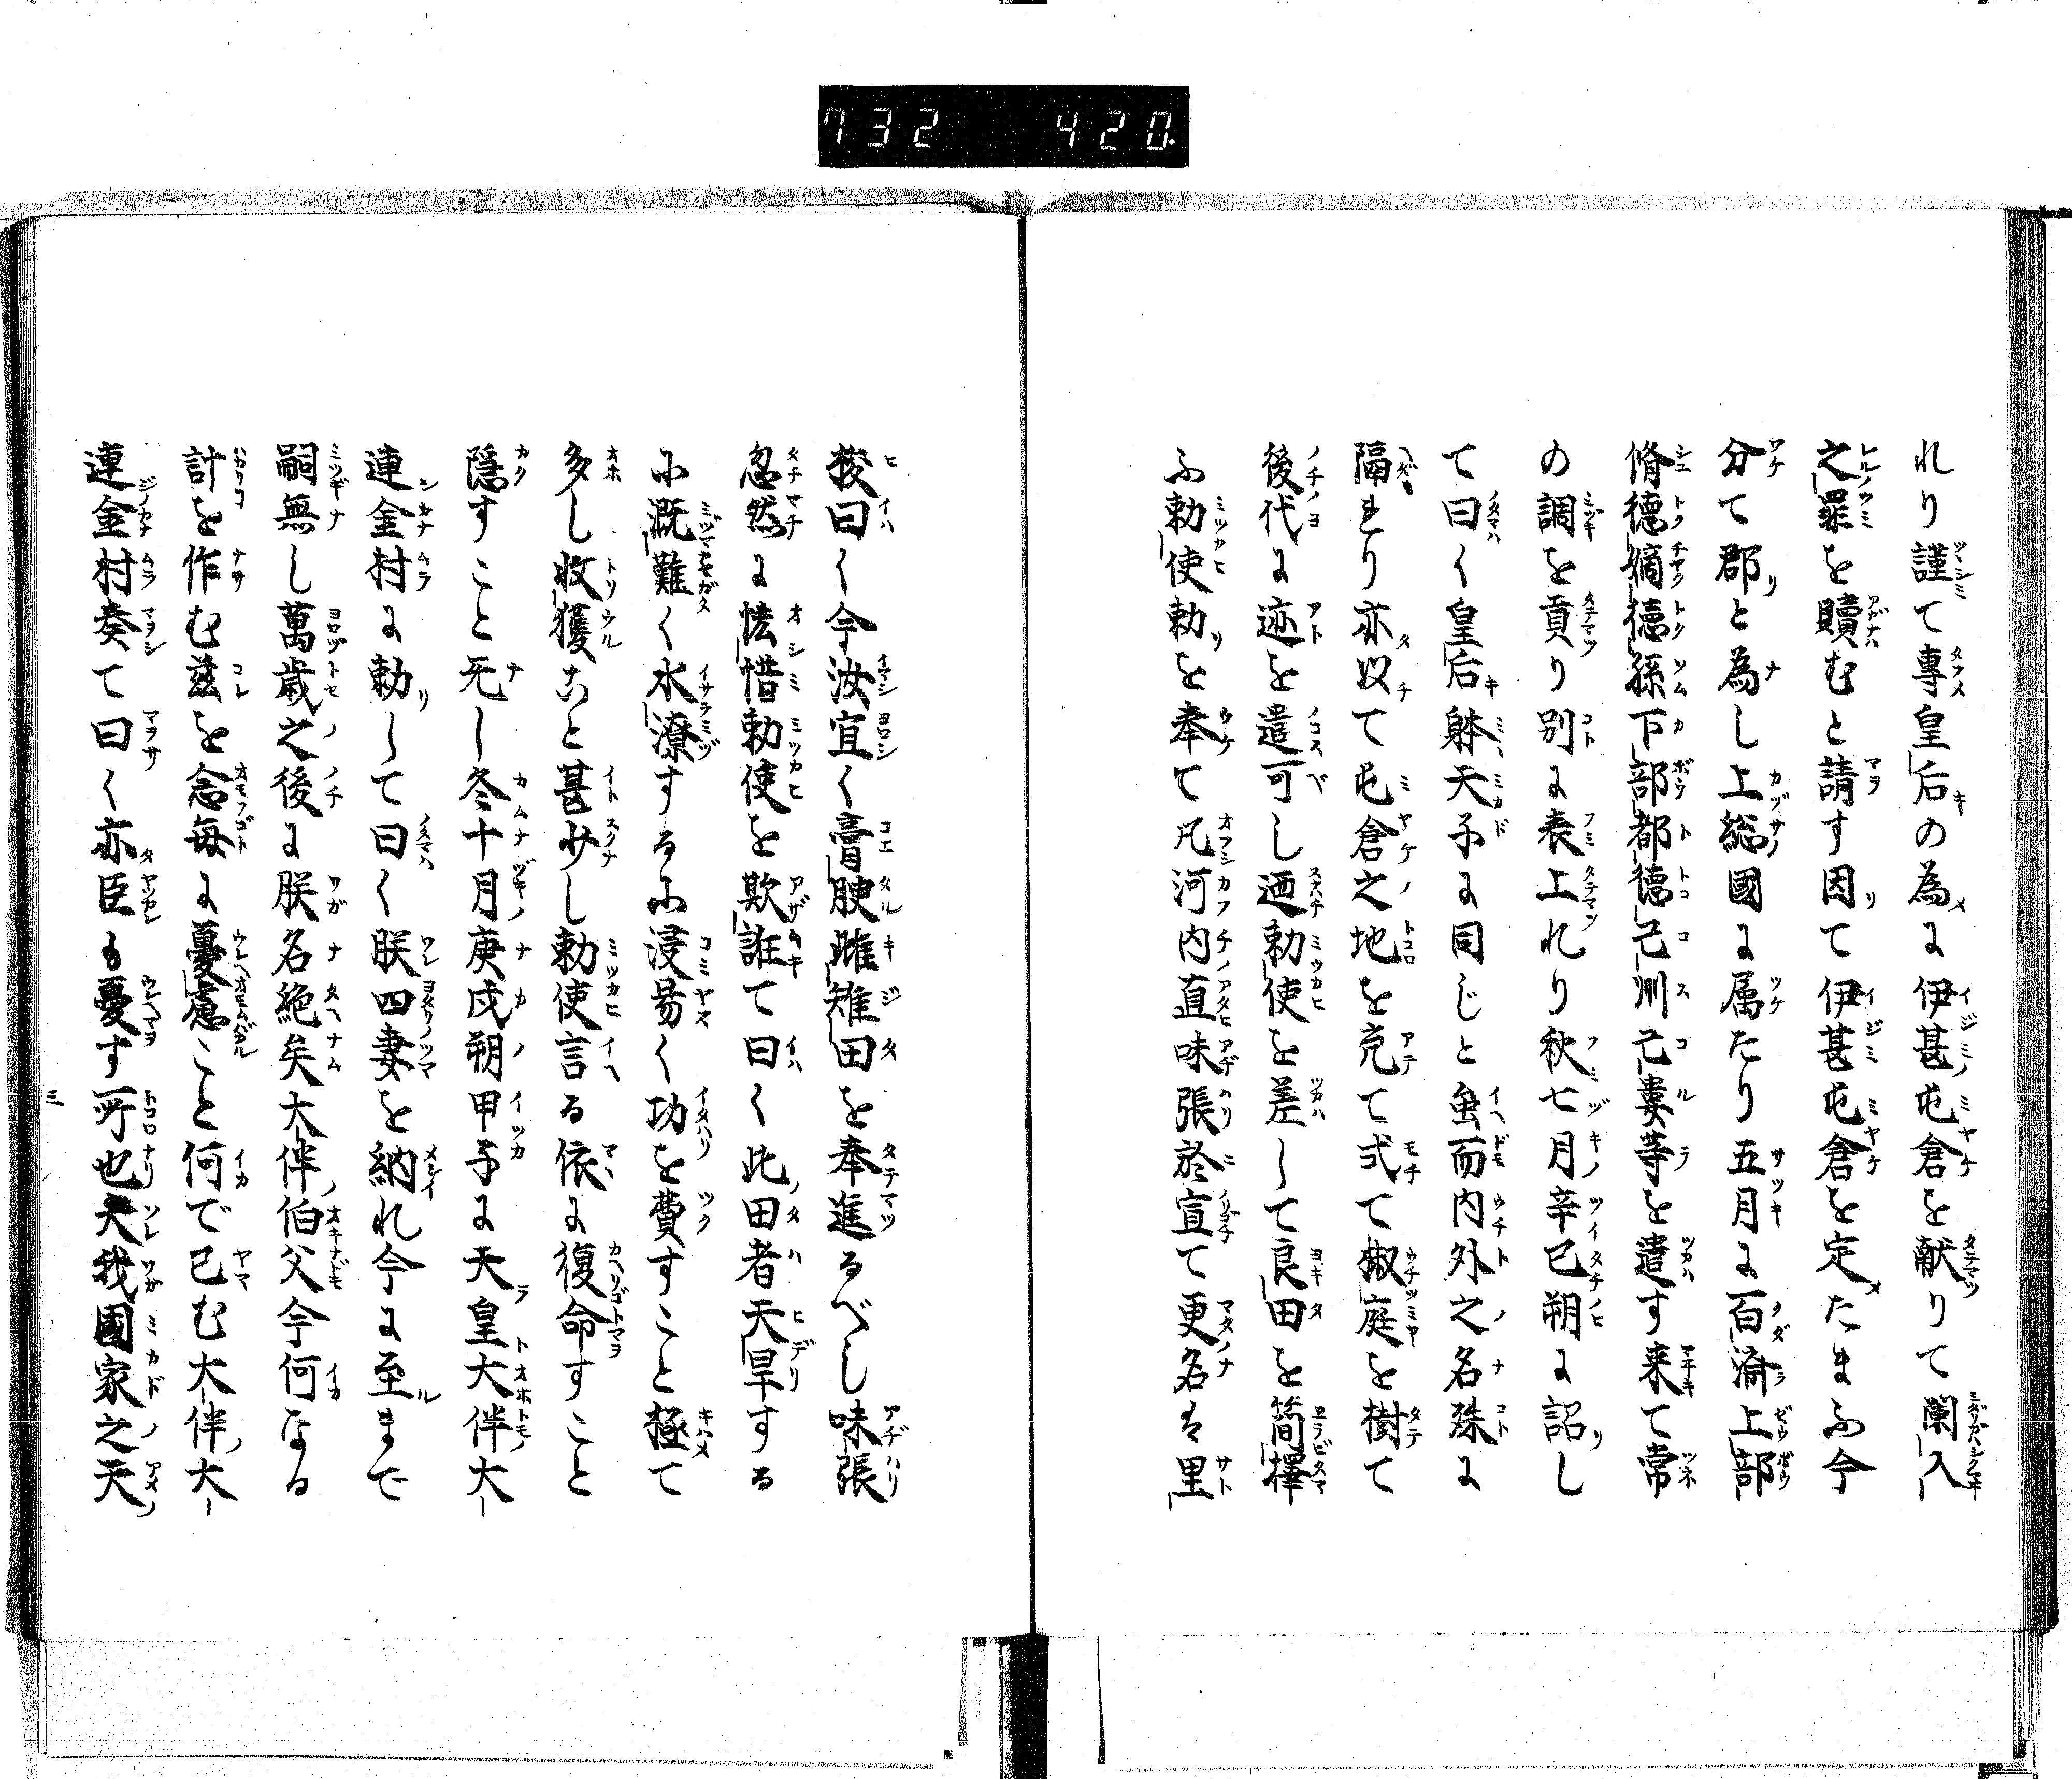 732 420.
れり謹て專皇后の為に伊甚屯倉を献りて闌入
之罪を贖むと請す因て伊甚屯倉を定たまふ今
分て郡と為し上総國に属たり五月に百濟上部
脩德嫡德孫下部都德己州己婁等を遣す来て常
の調を貢り別に表上れり秋七月辛巳朔に詔し
て曰く皇后躰天子に同じと虽而内外之名殊に
隔れり亦以て屯倉之地を充て式て椒庭を樹て
後代に迹を遣可し廼勅使を差して良田を簡擇
ふ勅使勅を奉て凡河内直味張於宣て更名は里
梭曰く今汝宜く膏腴雌雉田を奉進るべし味張
忽然に恡惜勅使を欺誑て曰く此田者天旱する
に漑難く水潦するに浸昜く功を費すこと極て
多し收獲こと甚少し勅使言る依に復命すこと
隱すこと无し冬十月庚戌朔甲子に天皇大伴大
連金村に勅して曰く朕四妻を納れ今に至まで
嗣無し萬歳之後に朕名絶矣大伴伯父今何なる
計を作む茲を念毎に憂慮こと何で已む大伴大
連金村奏て曰く亦臣も憂す所也夫我國家之天
三